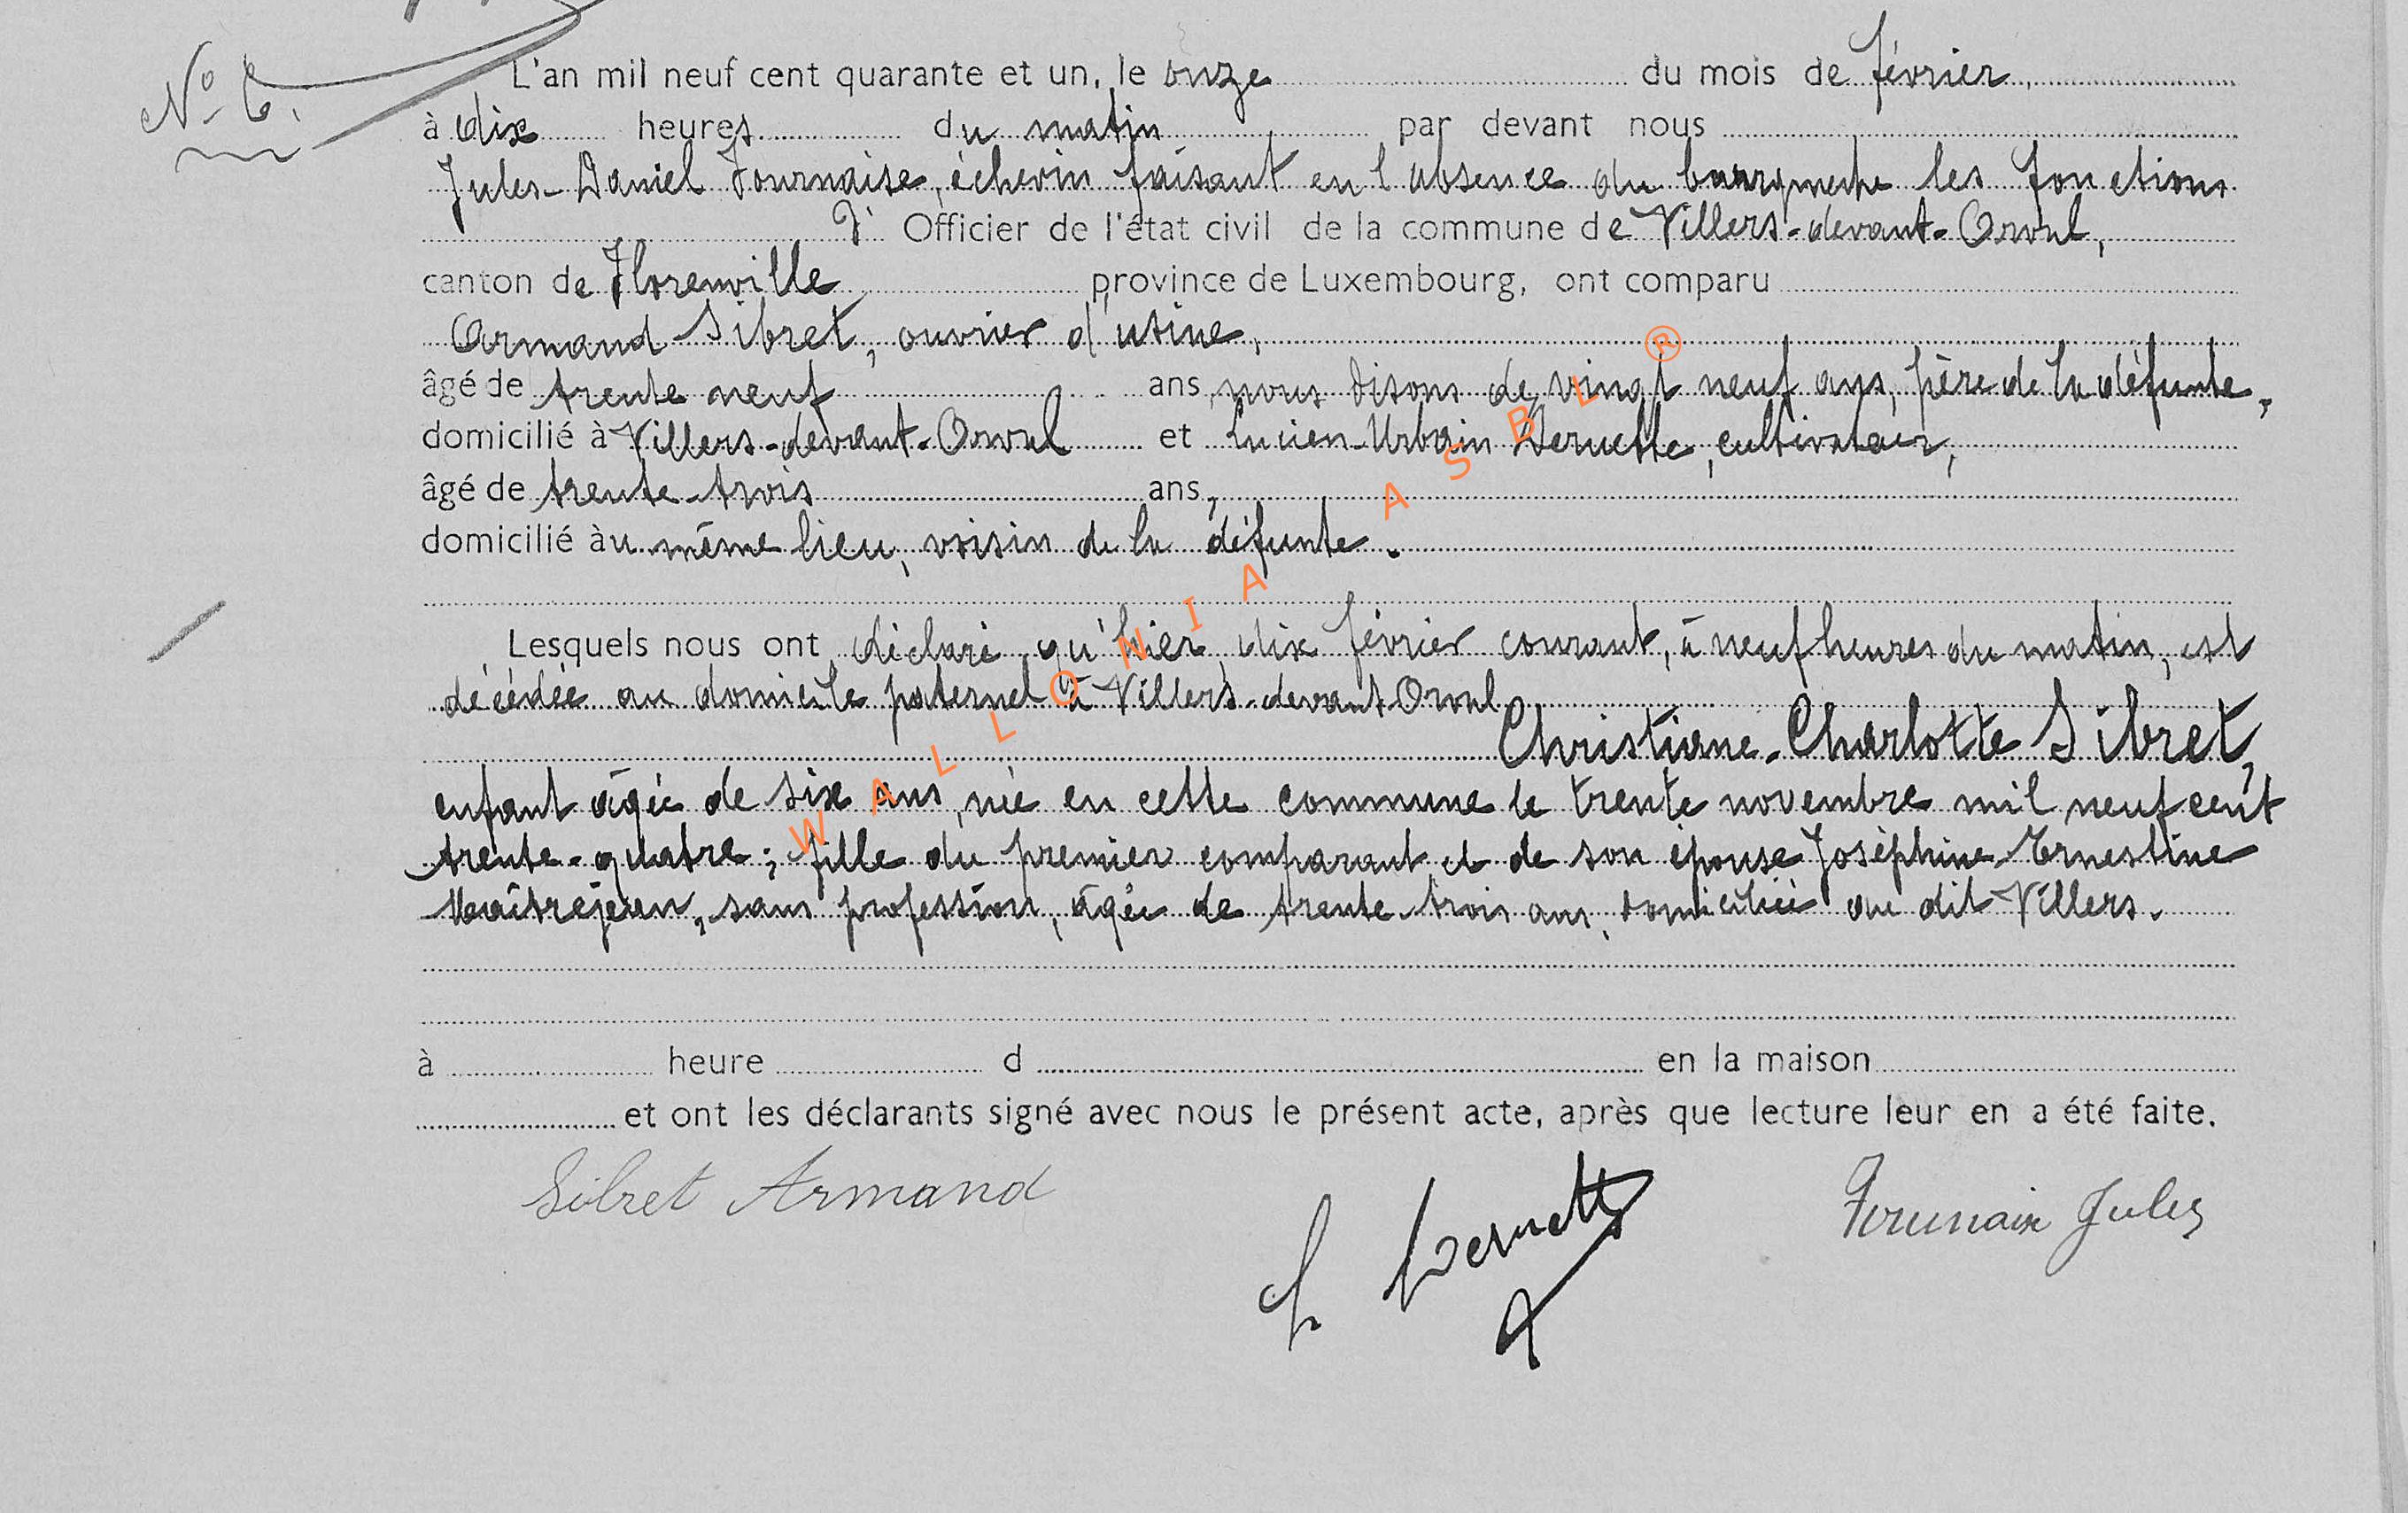 N° 6.
L'an mil neuf cent quarante et un, le onze du mois de février,
à dix heures du matin par devant nous
Jules-Daniel Fournaise, échevin faisant en l'absence du bourgmestre les fonctions
d' Officier de l'état civil de la commune de Villers-devant-Orval,
canton de Florenville province de Luxembourg, ont comparu
Armand Sibret, ouvrier d'usine,
âgé de trente neuf ans, nous disons de vingt neuf ans, père de la défunte,
domicilié à Villers-devant-Orval et Lucien-Urbain Dernette, cultivateur,
âgé de trente-trois ans,
domicilié au même lieu, voisin de la défunte.
Lesquels nous ont déclaré qu'hier, dix février courant, à neuf heures du matin, est
décédée au domicile paternel à Villers-devant Orval
Christiane-Charlotte Sibret,
enfant âgée de six ans, née en cette commune le trente novembre mil neuf cent
trente-quatre; fille du premier comparant et de son épouse Joséphine-Ernestine
Maîtrejean, sans profession, âgée de trente-trois ans, domiciliée au dit Villers.
à heure d en la maison
et ont les déclarants signé avec nous le présent acte, après que lecture leur en a été faite.
Sibret Armand
L Dernette
Jules
WALLONIA ASBL ®